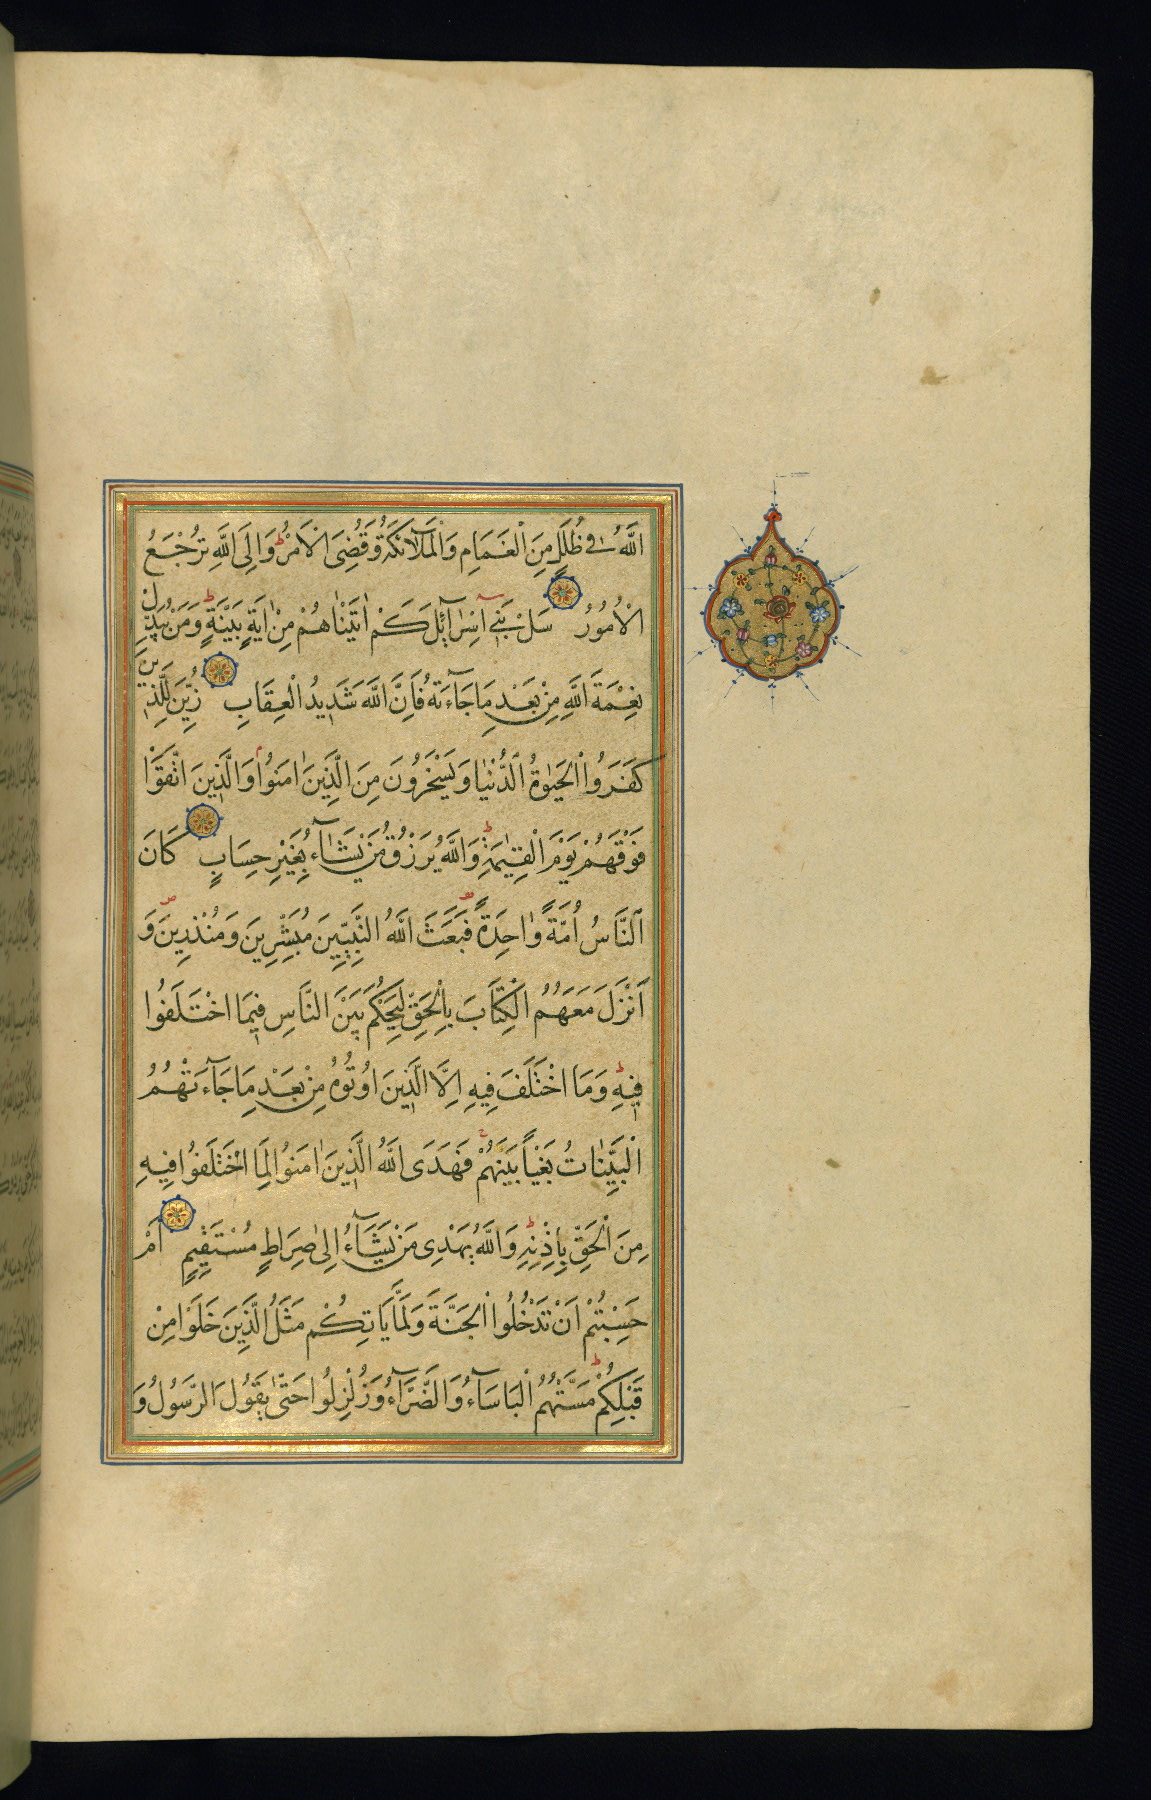 اللَّهُ فِي ظُلَلٍ مِنَ الْغَمَامِ وَالْمَلَآئِكَةُ وَقُضِيَ الْاَمْرُ ط وَاِلَى اللَّهِ تُرْجَعُ
الْاُمُورُ سَلْ بَنِي اِسْرَآئِلَ كَمْ اٰتَيْنَاهُمْ مِنْ اٰيَةٍ بَيِّنَةٍ ط وَمَنْ يُبَدِّلْ
نِعْمَةَ اللَّهِ مِنْ بَعْدِ مَا جَآءَتْهُ فَاِنَّ اللَّهَ شَدِيدُ الْعِقَابِ زُيِّنَ لِلَّذِينَ
كَفَرُوا الْحَيٰوةُ الدُّنْيَا وَيَسْخَرُونَ مِنَ الَّذِينَ اٰمَنُوا م وَالَّذِينَ اتَّقَوْا
فَوْقَهُمْ يَوْمَ الْقِيٰمَةِ ط وَاللَّهُ يَرْزُقُ مَنْ يَشَآءُ بِغَيْرِ حِسَابٍ كَانَ
النَّاسُ اُمَّةً وَاحِدَةً فَبَعَثَ اللَّهُ النَّبِيِّينَ مُبَشِّرِينَ وَمُنْذِرِينَ ص وَ
اَنْزَلَ مَعَهُمُ الْكِتَابَ بِالْحَقِّ لِيَحْكُمَ بَيْنَ النَّاسِ فِيمَا اخْتَلَفُوا
فِيهِ ط وَمَا اخْتَلَفَ فِيهِ اِلَّا الَّذِينَ اُوتُوهُ مِنْ بَعْدِ مَا جَآءَتْهُمُ
الْبَيِّنَاتُ بَغْيًا بَيْنَهُمْ ج فَهَدَى اللَّهُ الَّذِينَ اٰمَنُوا لِمَا اخْتَلَفُوا فِيهِ
مِنَ الْحَقِّ بِاِذْنِهِ ط وَاللَّهُ يَهْدِي مَنْ يَشَآءُ اِلٰى صِرَاطٍ مُسْتَقِيمٍ اَمْ
حَسِبْتُمْ اَنْ تَدْخُلُوا الْجَنَّةَ وَلَمَّا يَاْتِكُمْ مَثَلُ الَّذِينَ خَلَوْا مِنْ
قَبْلِكُمْ ط مَسَّتْهُمُ الْبَاْسَآءُ وَالضَّرَّآءُ وَزُلْزِلُوا حَتّٰى يَقُولَ الرَّسُولُ وَ